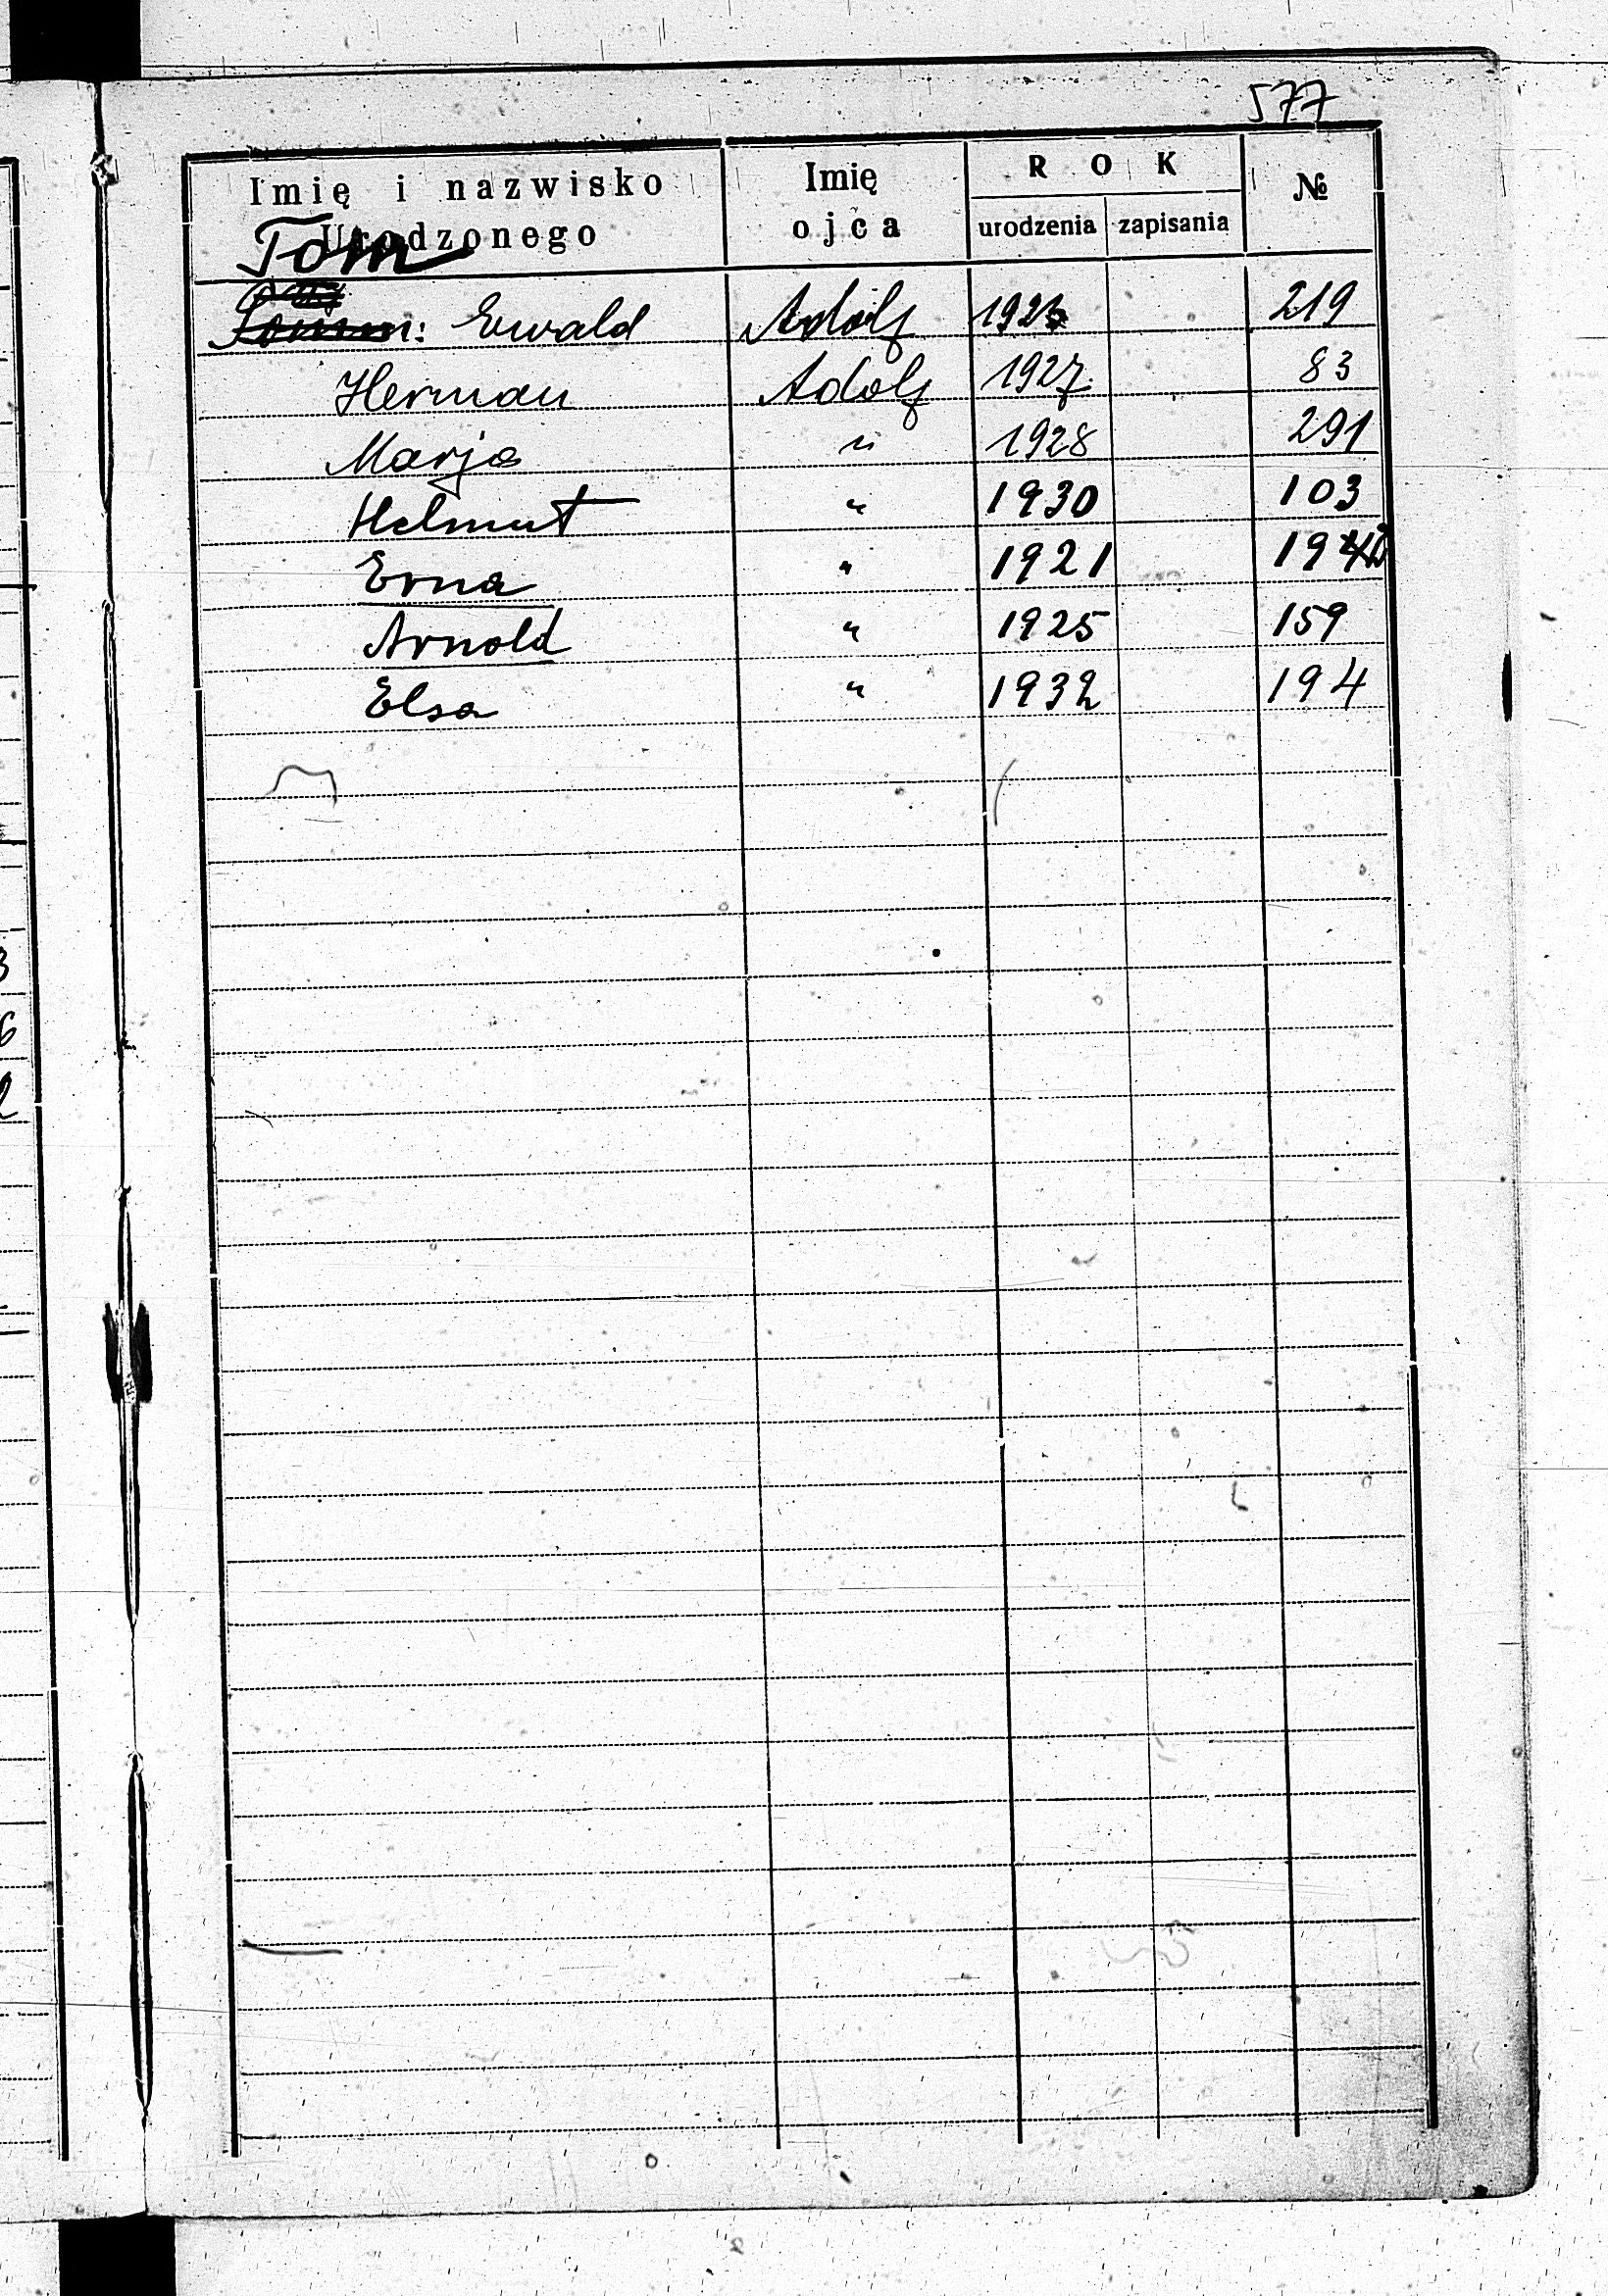 577
Imię i nazwisko Urodzonego Imię ojca ROK urodzenia zapisania №
Tom
Ewald Adolf 1923 219
Herman Adolf 1927 83
Marja " 1928 291
Helmut " 1930 103
Erna " 1921
Arnold " 1925 159
Elsa " 1932 194